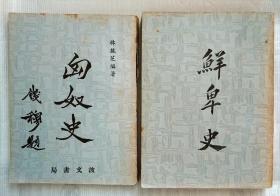 林旅芝編著
匈奴史
錢穆題
波文書局
鮮卑史